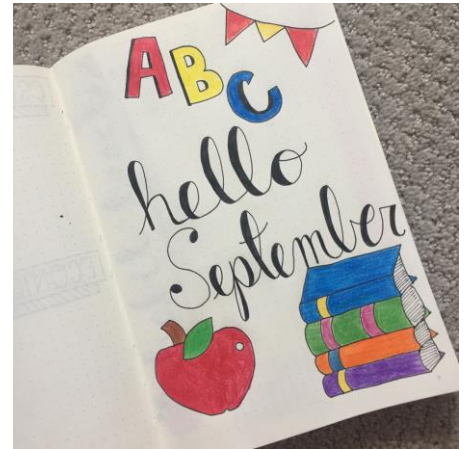 ABC
hello
September